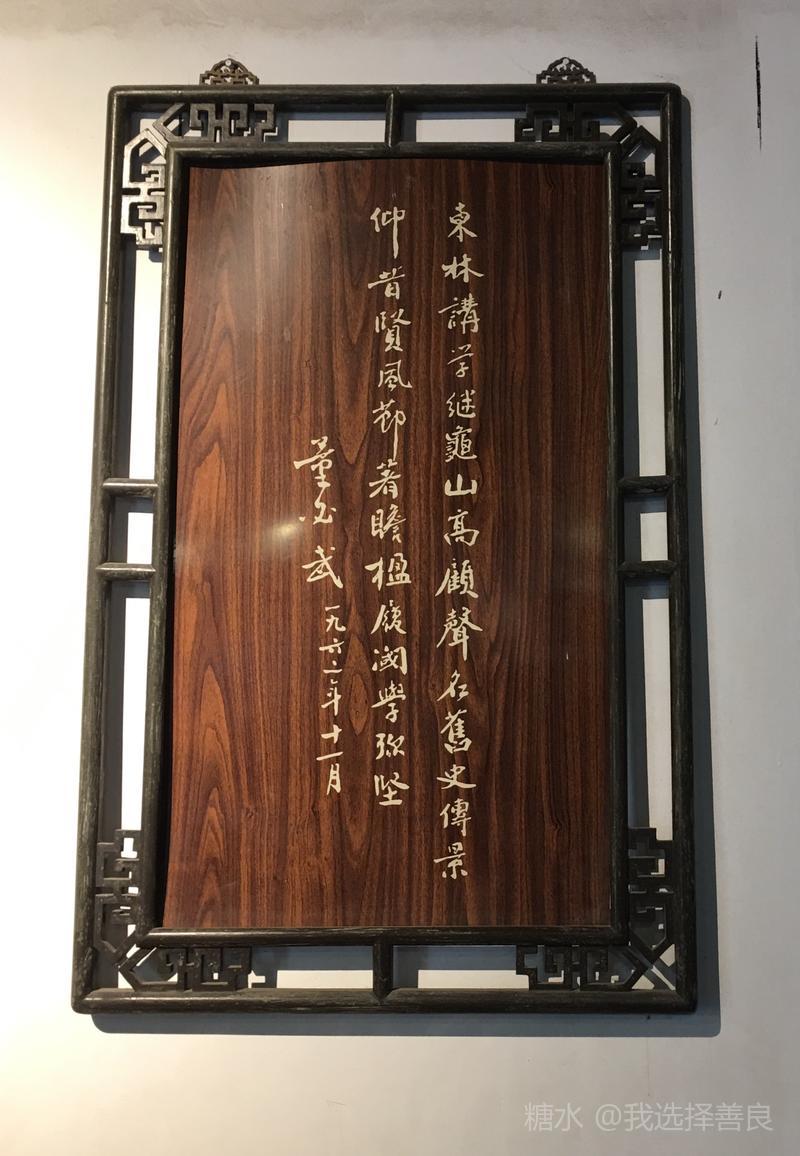 東林講学继龜山高顧聲名舊史傳景
仰昔賢風莭著瞻楹履阈學弥坚
董必武 一九六二年十一月
糖水 @我选择善良